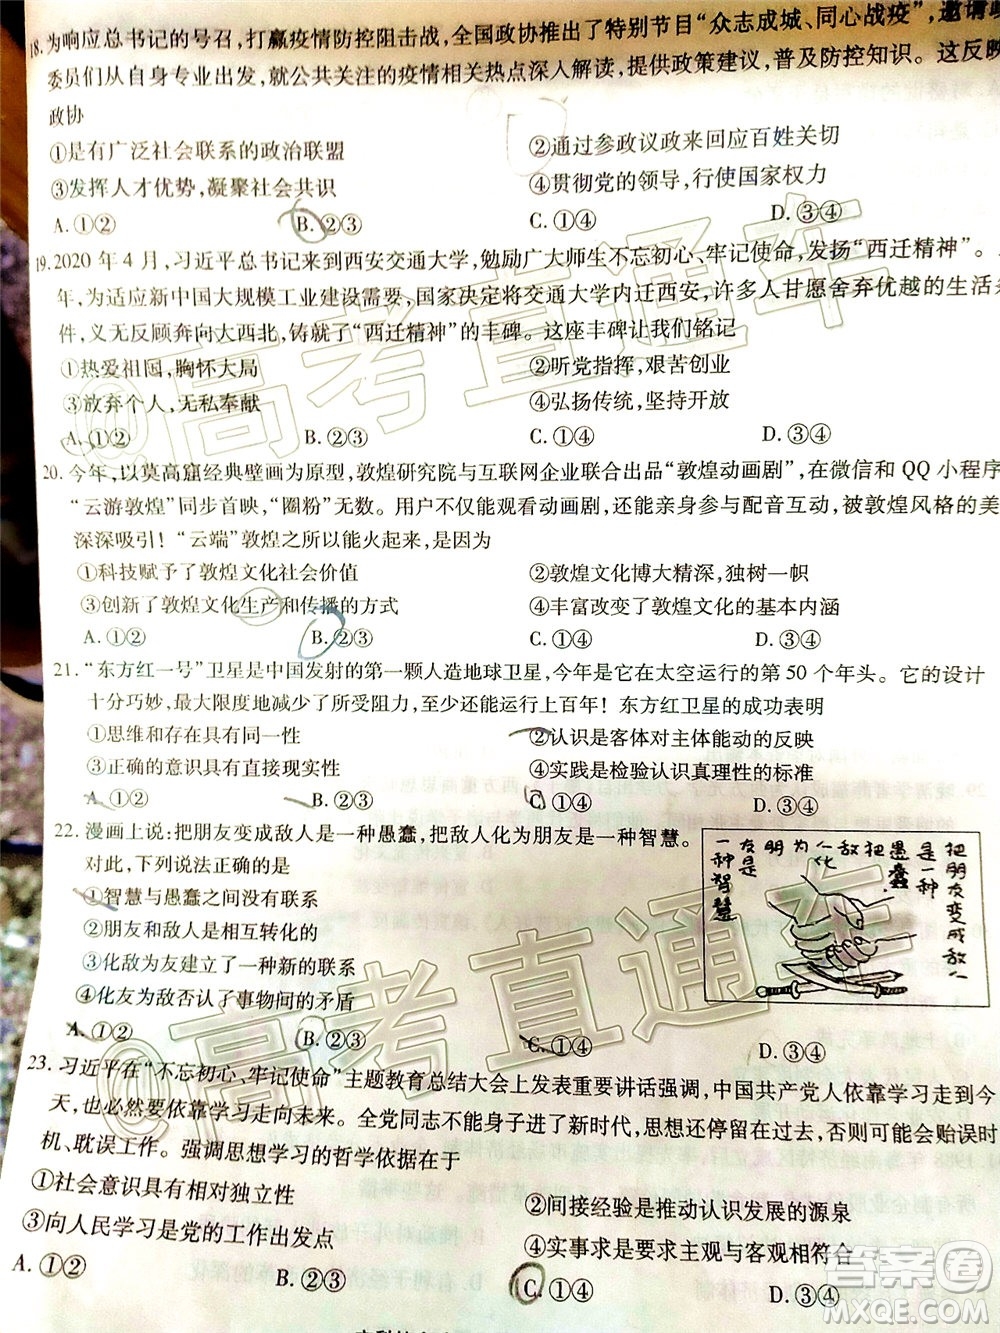 18.为响应总书记的号召，打赢疫情防控阻击战，全国政协推出了特别节目“众志成城、同心战疫”，邀请政
委员们从自身专业出发，就公共关注的疫情相关热点深入解读，提供政策建议，普及防控知识。这反映
政协
①是有广泛社会联系的政治联盟 ②通过参政议政来回应百姓关切
③发挥人才优势，凝聚社会共识 ④贯彻党的领导，行使国家权力
A.①② B.②③ C.①④ D.③④
19.2020年4月，习近平总书记来到西安交通大学，勉励广大师生不忘初心、牢记使命，发扬“西迁精神”。
年，为适应新中国大规模工业建设需要，国家决定将交通大学内迁西安，许多人甘愿舍弃优越的生活条
件，义无反顾奔向大西北，铸就了“西迁精神”的丰碑。这座丰碑让我们铭记
①热爱祖国，胸怀大局 ②听党指挥，艰苦创业
③放弃个人，无私奉献 ④弘扬传统，坚持开放
A.①② B.②③ C.①④ D.③④
20.今年，以莫高窟经典壁画为原型，敦煌研究院与互联网企业联合出品“敦煌动画剧”，在微信和QQ小程序
“云游敦煌”同步首映，“圈粉”无数。用户不仅能观看动画剧，还能亲身参与配音互动，被敦煌风格的美
深深吸引！“云端”敦煌之所以能火起来，是因为
①科技赋予了敦煌文化社会价值 ②敦煌文化博大精深，独树一帜
③创新了敦煌文化生产和传播的方式 ④丰富改变了敦煌文化的基本内涵
A.①② B.②③ C.①④ D.③④
21.“东方红一号”卫星是中国发射的第一颗人造地球卫星，今年是它在太空运行的第50个年头。它的设计
十分巧妙，最大限度地减少了所受阻力，至少还能运行上百年！东方红卫星的成功表明
①思维和存在具有同一性 ②认识是客体对主体能动的反映
③正确的意识具有直接现实性 ④实践是检验认识真理性的标准
A.①② B.②③ C.①④ D.③④
22.漫画上说：把朋友变成敌人是一种愚蠢，把敌人化为朋友是一种智慧。
对此，下列说法正确的是
①智慧与愚蠢之间没有联系
②朋友和敌人是相互转化的
③化敌为友建立了一种新的联系
④化友为敌否认了事物间的矛盾
A.①② B.②③ C.①④ D.③④
把朋友变成敌人
是一种
愚蠢
把敌人化
为朋友是
一种智慧
23.习近平在“不忘初心、牢记使命”主题教育总结大会上发表重要讲话强调，中国共产党人依靠学习走到今
天，也必然要依靠学习走向未来。全党同志不能身子进了新时代，思想还停留在过去，否则可能会贻误时
机、耽误工作。强调思想学习的哲学依据在于
①社会意识具有相对独立性 ②间接经验是推动认识发展的源泉
③向人民学习是党的工作出发点 ④实事求是要求主观与客观相符合
A.①② B.②③ C.①④ D.③④
@高考直通车
@高考直通车
答案圈
MXQE.COM